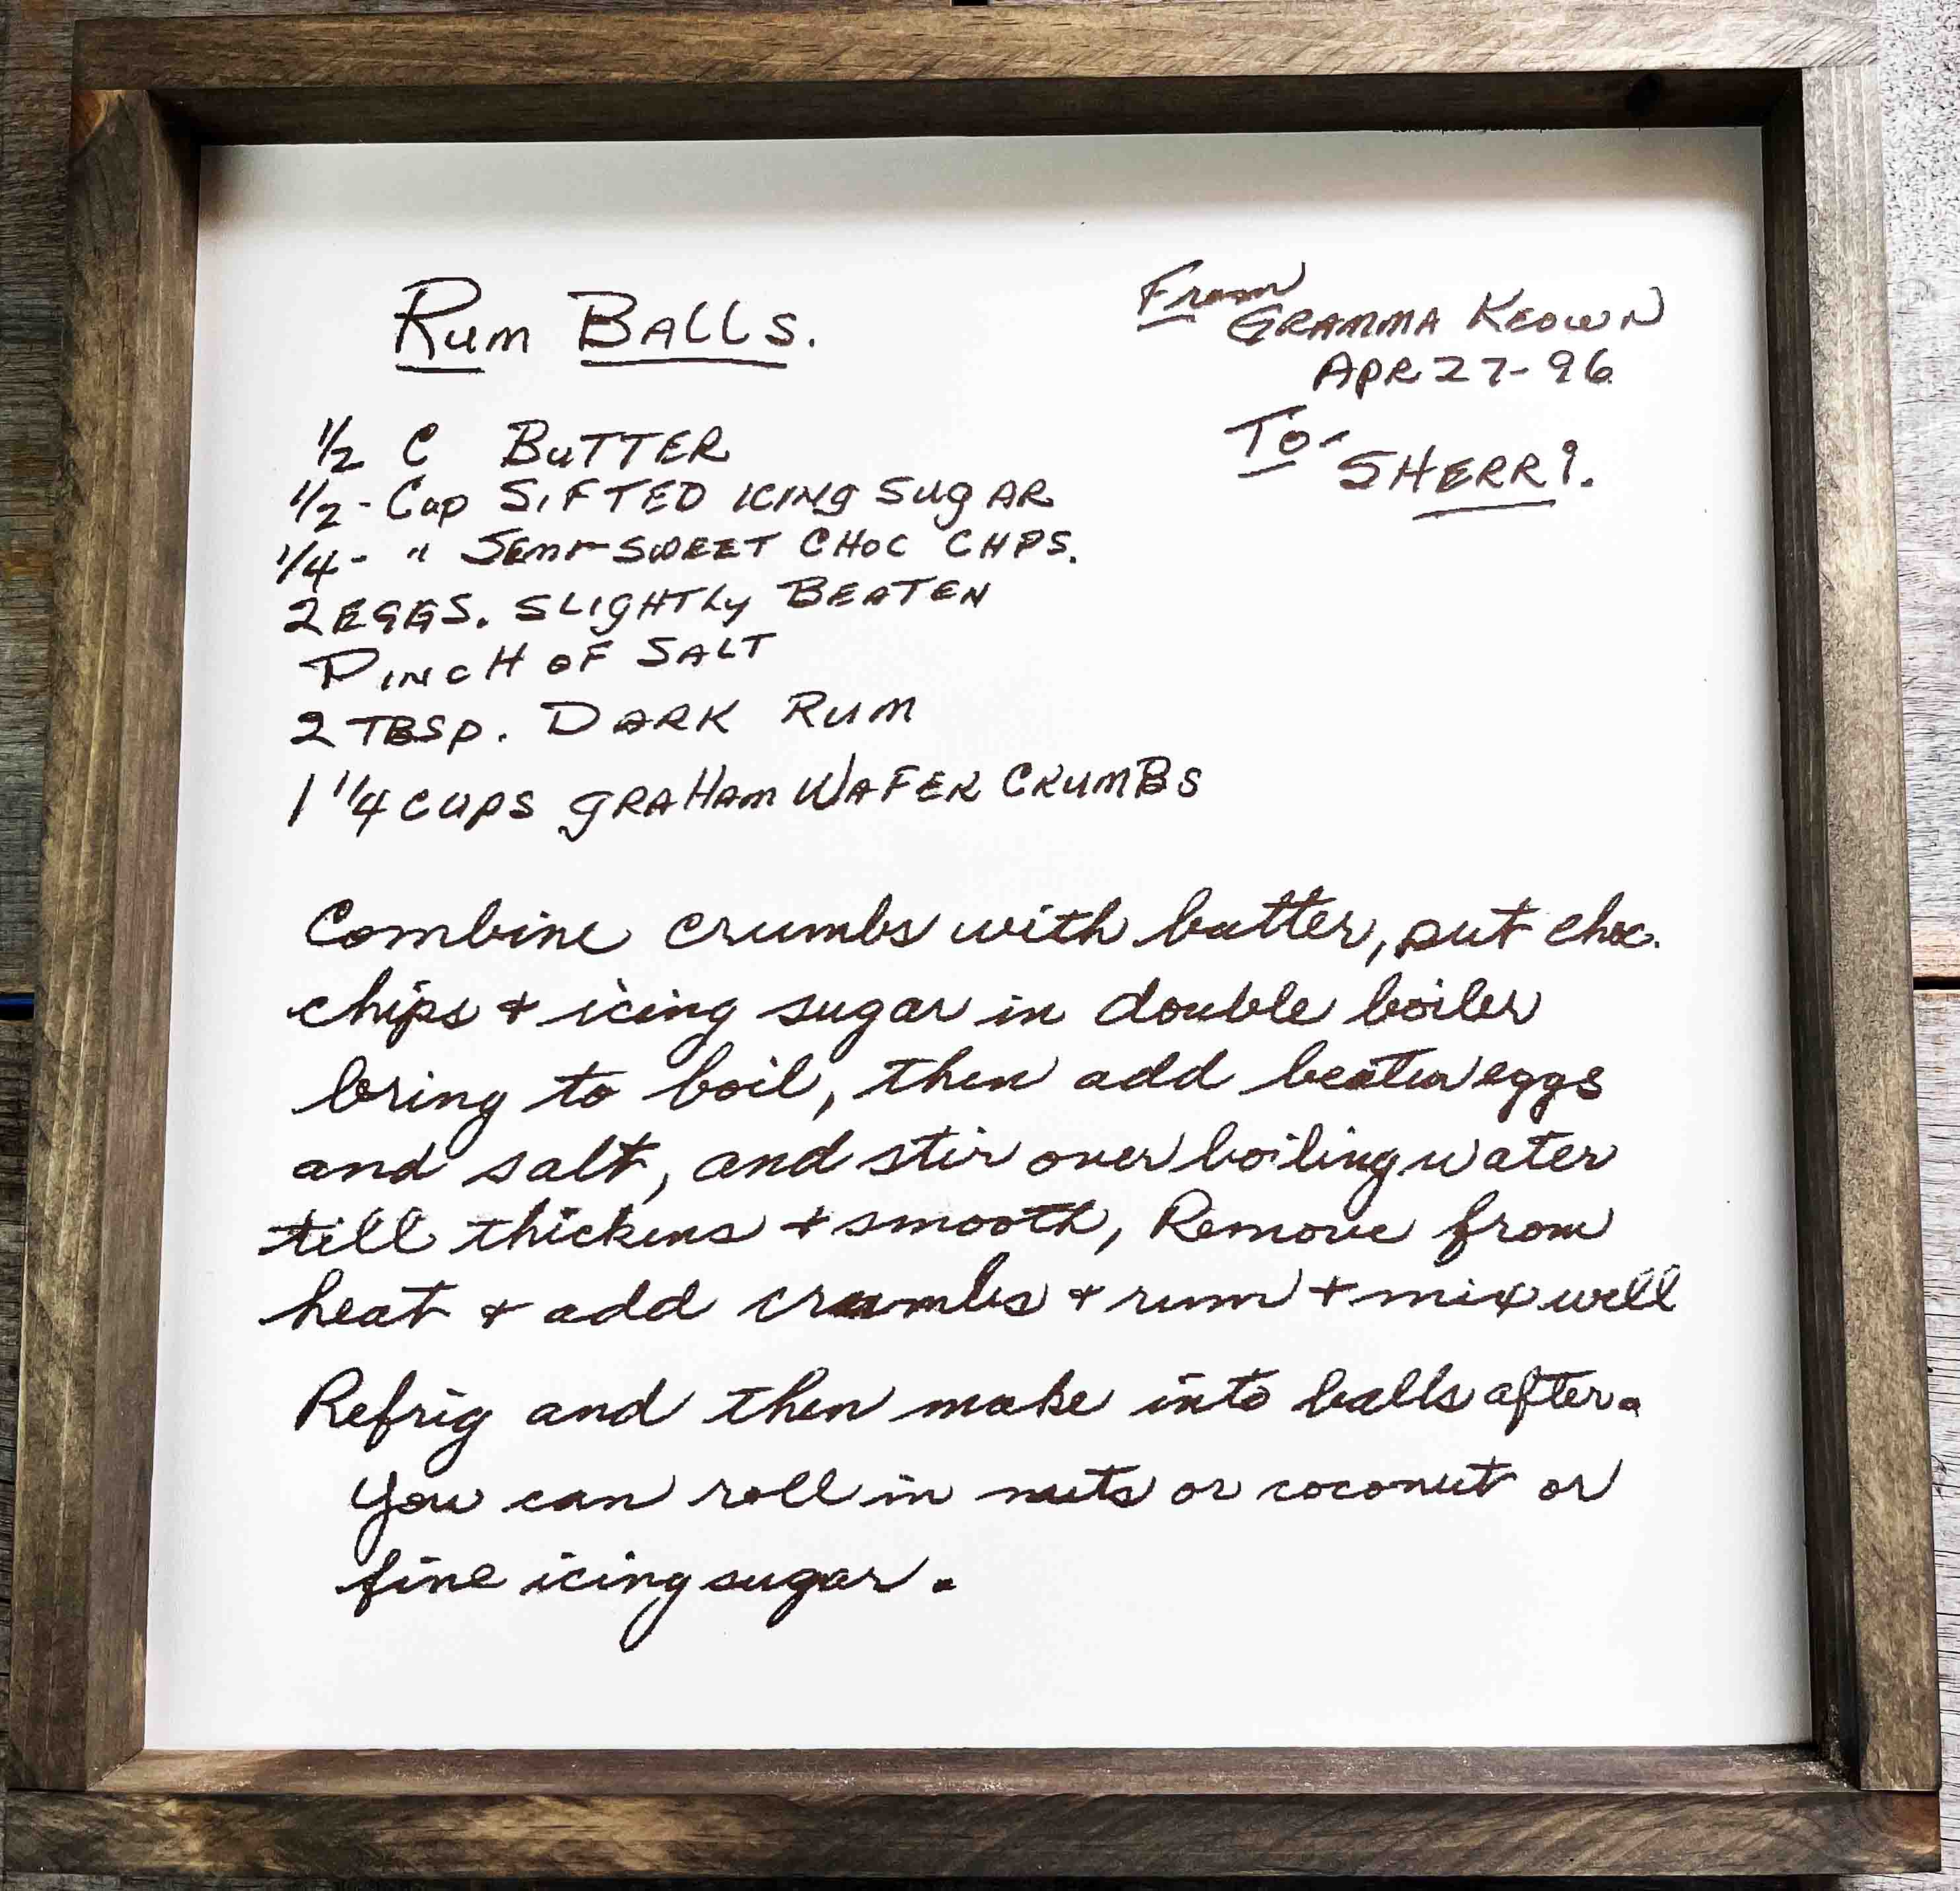 Rum Balls.
From
Gramma Keown
Apr 27-96
To-
Sherri.
1/2 C Butter
1/2 - Cup Sifted icing Sugar
1/4 - " Semi-Sweet Choc Chps.
2 Eggs. Slightly Beaten
Pinch of Salt
2 Tbsp. Dark Rum
1 1/4 cups graham Wafer Crumbs
Combine crumbs with butter, put choc.
chips + icing sugar in double boiler
bring to boil, then add beaten eggs
and salt, and stir over boiling water
till thickens + smooth, Remove from
heat + add crumbs + rum + mix well
Refrig and then make into balls after.
You can roll in nuts or coconut or
fine icing sugar.